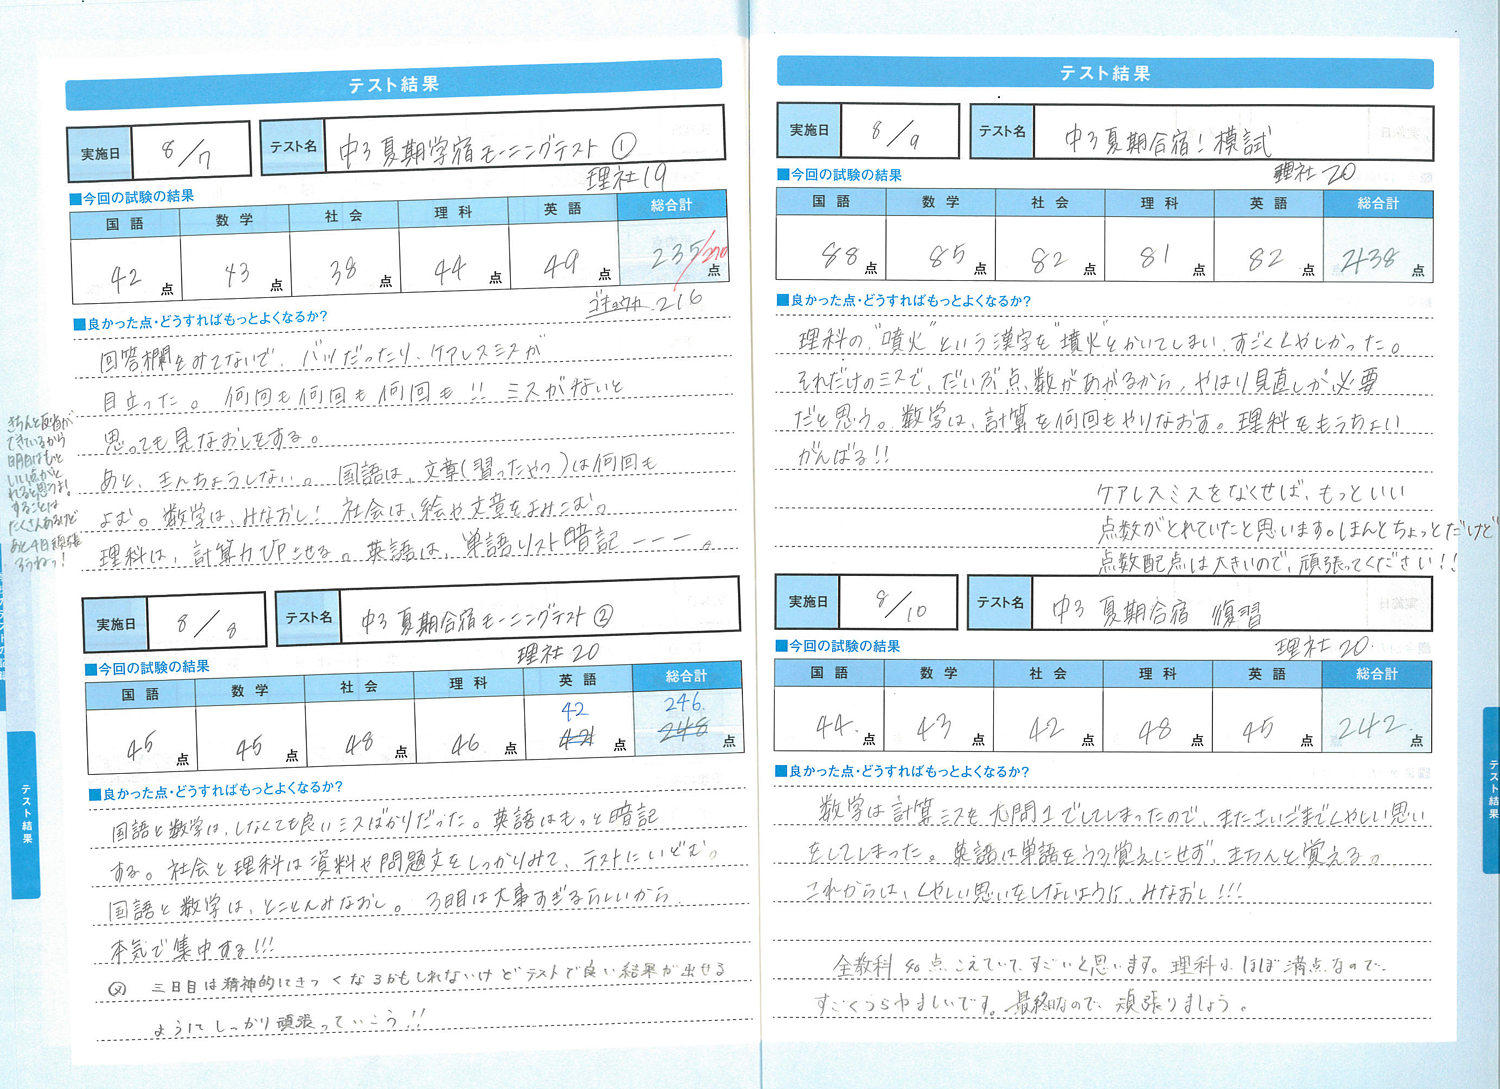 テスト結果
実施日 8/7 テスト名 中3夏期学宿モーニングテスト①
理社19
■今回の試験の結果
国語 数学 社会 理科 英語 総合計
42点 43点 38点 44点 49点 235/270点
ゴキョウカ 216
■良かった点・どうすればもっとよくなるか?
回答欄をみてないで、バツだったり、ケアレスミスが
目立った。何回も何回も何回も!!ミスがないと
思っても見なおしをする。
あと、きんちょうしない。国語は、文章(習ったやつ)は何回も
よむ。数学は、みなおし!社会は、絵や文章をよみこむ。
理科は、計算力UPさせる。英語は、単語リスト暗記ーーー。
きちんと反省が
できているから
明日はもっと
いい点がと
れると思うよ!
することは
たくさんあるけど
あと4日頑張
ろうねっ!
実施日 8/8 テスト名 中3夏期合宿モーニングテスト②
理社20
■今回の試験の結果
国語 数学 社会 理科 英語 総合計
42 246.
45点 45点 48点 46点 421点 248点
■良かった点・どうすればもっとよくなるか?
国語と数学は、しなくても良いミスばかりだった。英語はもっと暗記
する。社会と理科は資料や問題文をしっかりみて、テストにいどむ。
国語と数学は、とことんみなおし。3日目は大事すぎるらしいから
本気で集中する!!!
三日目は精神的にきつくなるかもしれないけどテストで良い結果が出せる
ようにしっかり頑張っていこう!!
テスト結果
テスト結果
実施日 8/9 テスト名 中3夏期合宿!模試
理社20
■今回の試験の結果
国語 数学 社会 理科 英語 総合計
88点 85点 82点 81点 82点 2438点
■良かった点・どうすればもっとよくなるか?
理科の"噴火"という漢字を"墳火"とかいてしまい、すごくくやしかった。
それだけのミスで、だいぶ点数があがるから、やはり見直しが必要
だと思う。数学は、計算を何回もやりなおす。理科をもうちょい
がんばる!!
ケアレスミスをなくせば、もっといい
点数がとれていたと思います。ほんとちょっとだけど
点数配点は大きいので、頑張ってください!!
実施日 8/10 テスト名 中3夏期合宿 復習
理社20
■今回の試験の結果
国語 数学 社会 理科 英語 総合計
44.点 43点 42点 48点 45点 242点
■良かった点・どうすればもっとよくなるか?
数学は計算ミスを大問1でしてしまったので、またさいごまでくやしい思い
をしてしまった。英語は単語をうろ覚えにせず、きちんと覚える。
これからは、くやしい思いをしないように、みなおし!!!
全教科40点こえていて、すごいと思います。理科は、ほぼ満点なので、
すごくうらやましいです。最終なので、頑張りましょう。
テスト結果